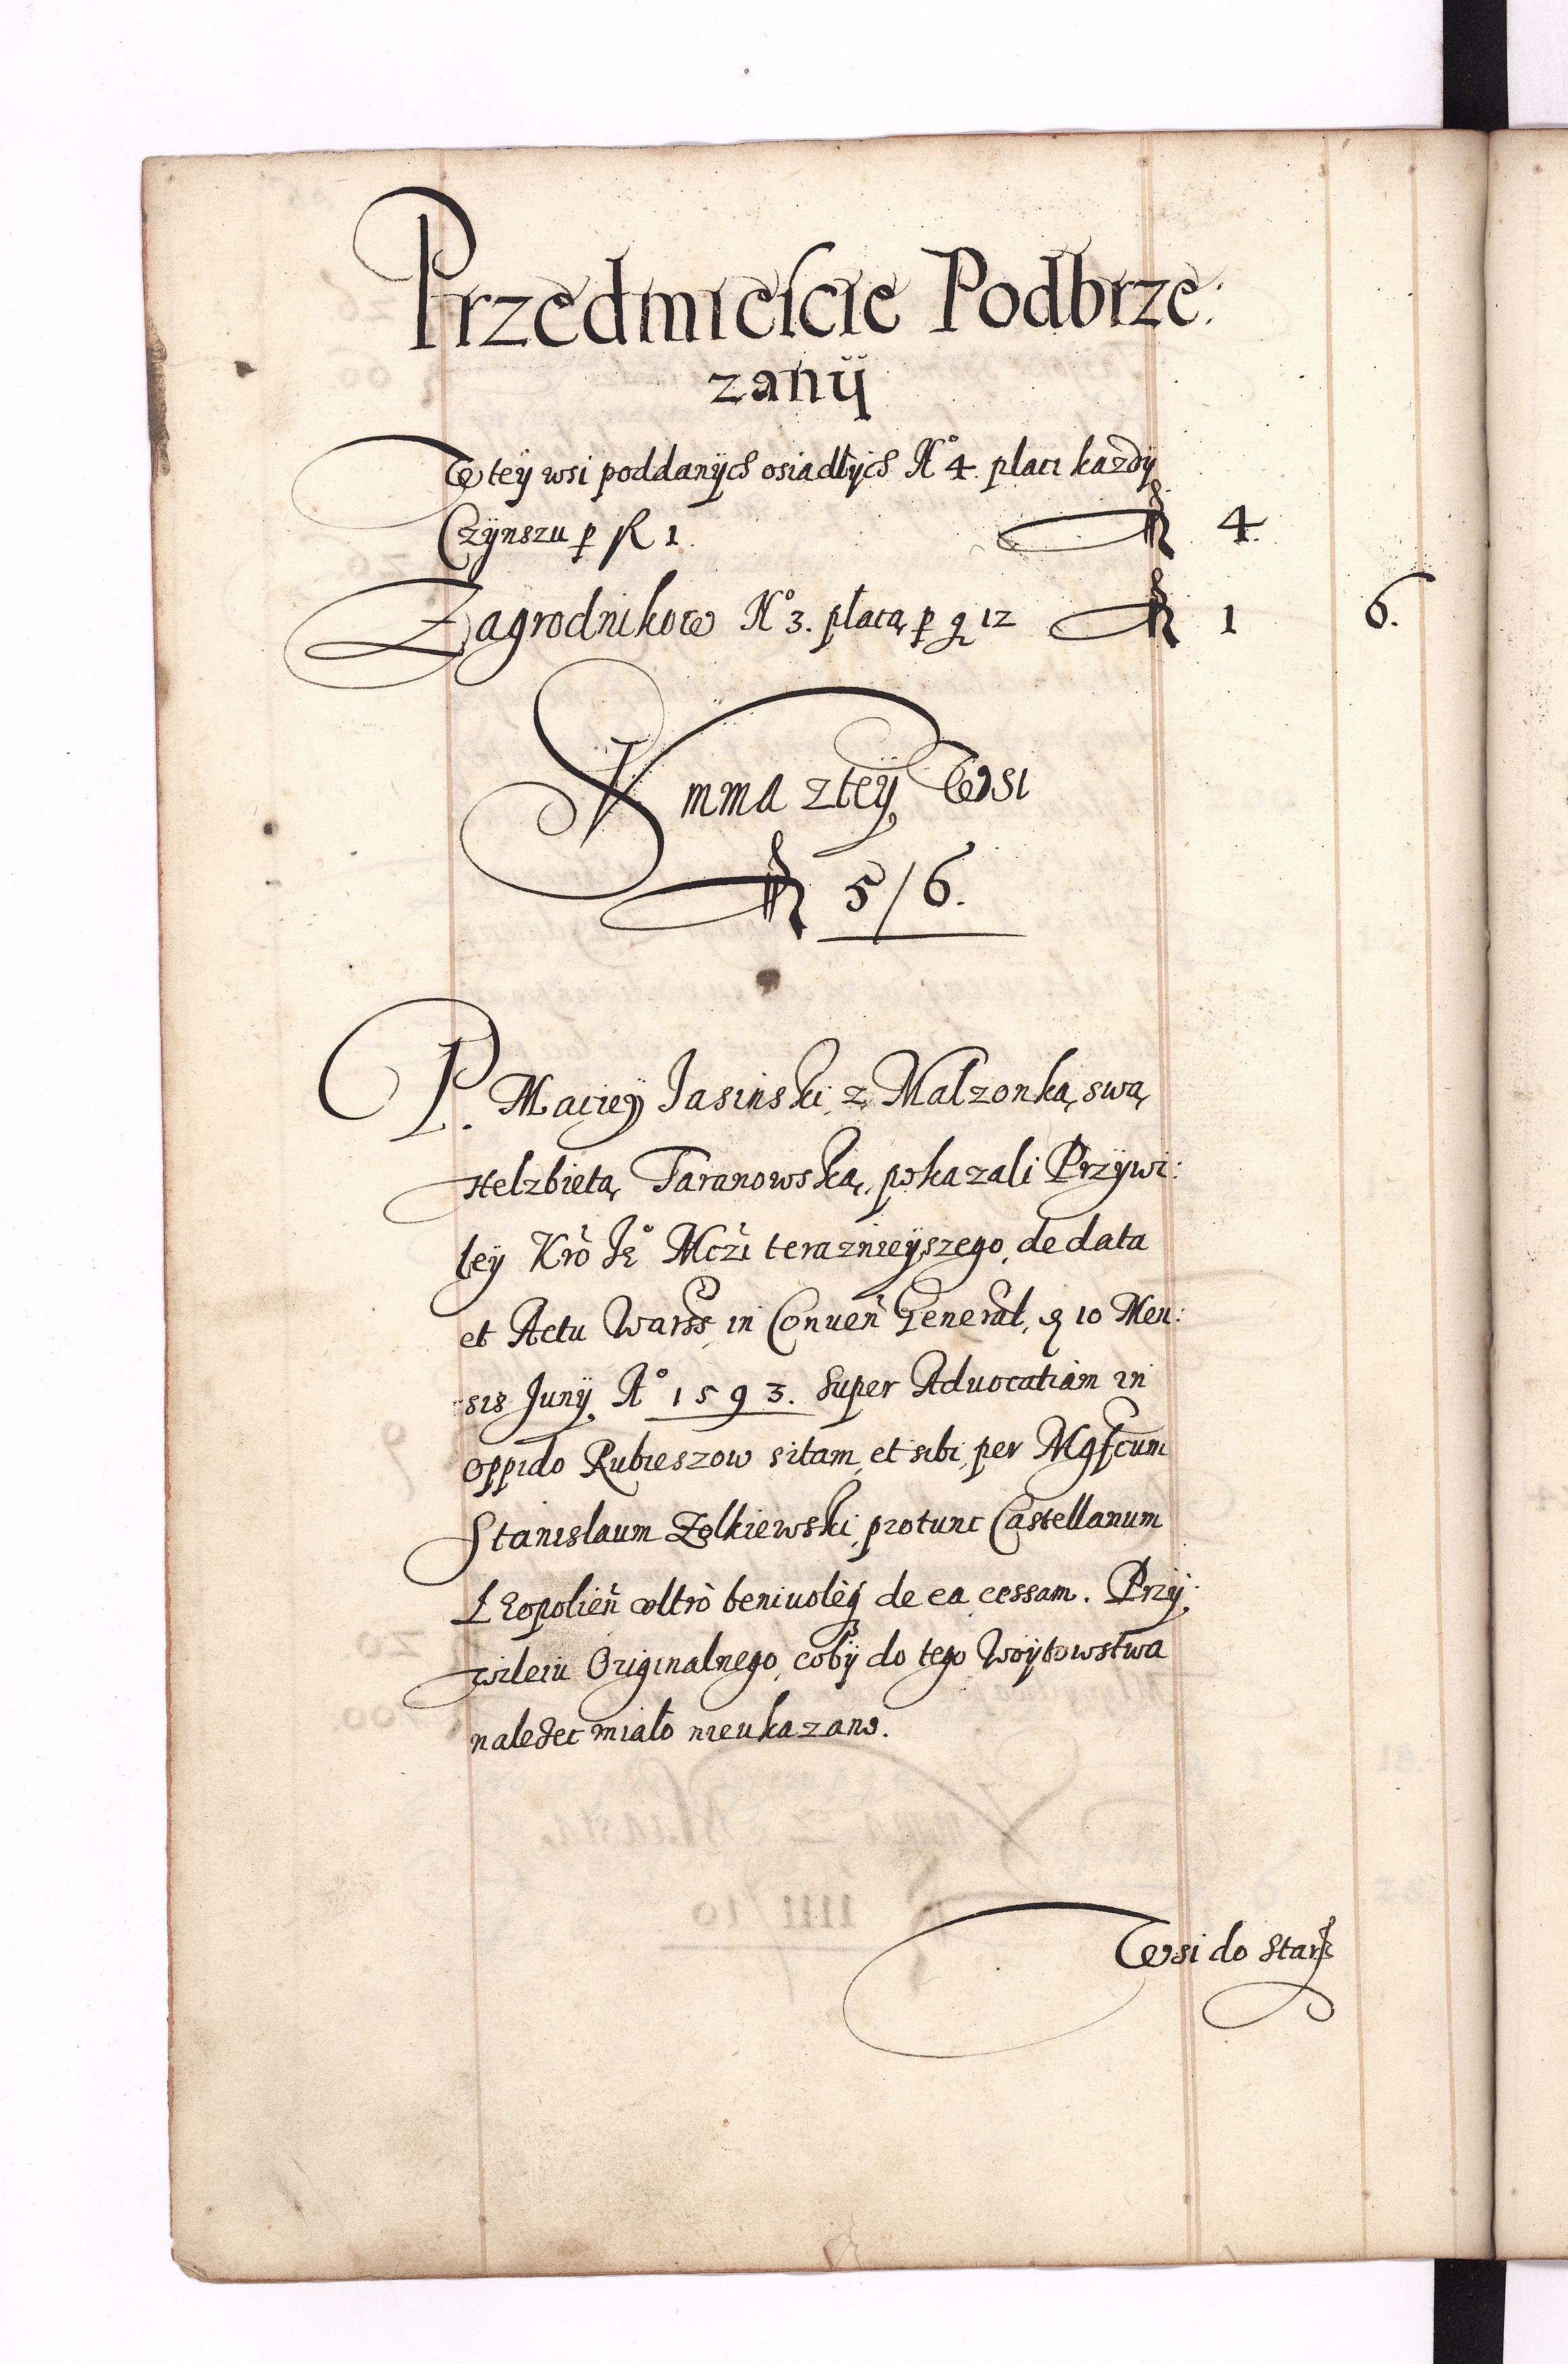 Przedmieście Podbrze:
zanÿ
W teÿ wsi poddanÿch osiadłÿch Nº 4. płaci kazdÿ
Czÿnszu p fl 1. fl 4.
Zagrodnikow Nº 3. płacą p g 12 fl 1 6.
Summa z teÿ Wsi
fl 5/6.
P. Macieÿ Jasinski z Malzonką swą
Helzbietą Taranowską, pokazali Przÿwi:
leÿ Kro Je° Mczi teraznieÿszego, de data
et Actu Warss, in Conuen General, 10 Men:
sis Junÿ A° 1593. Super Aduocatiam in
oppido Rubieszow sitam, et sibi, per Mgfcum
Stanislaum Zolkiewski, protunc Castellanum
Leopolien ultrò beniuolèq de ea cessam. Przÿ:
wileiu Originalnego, cobÿ do tego Woÿtowstwa
nalezec miało nieukazano.
Wsi do Star